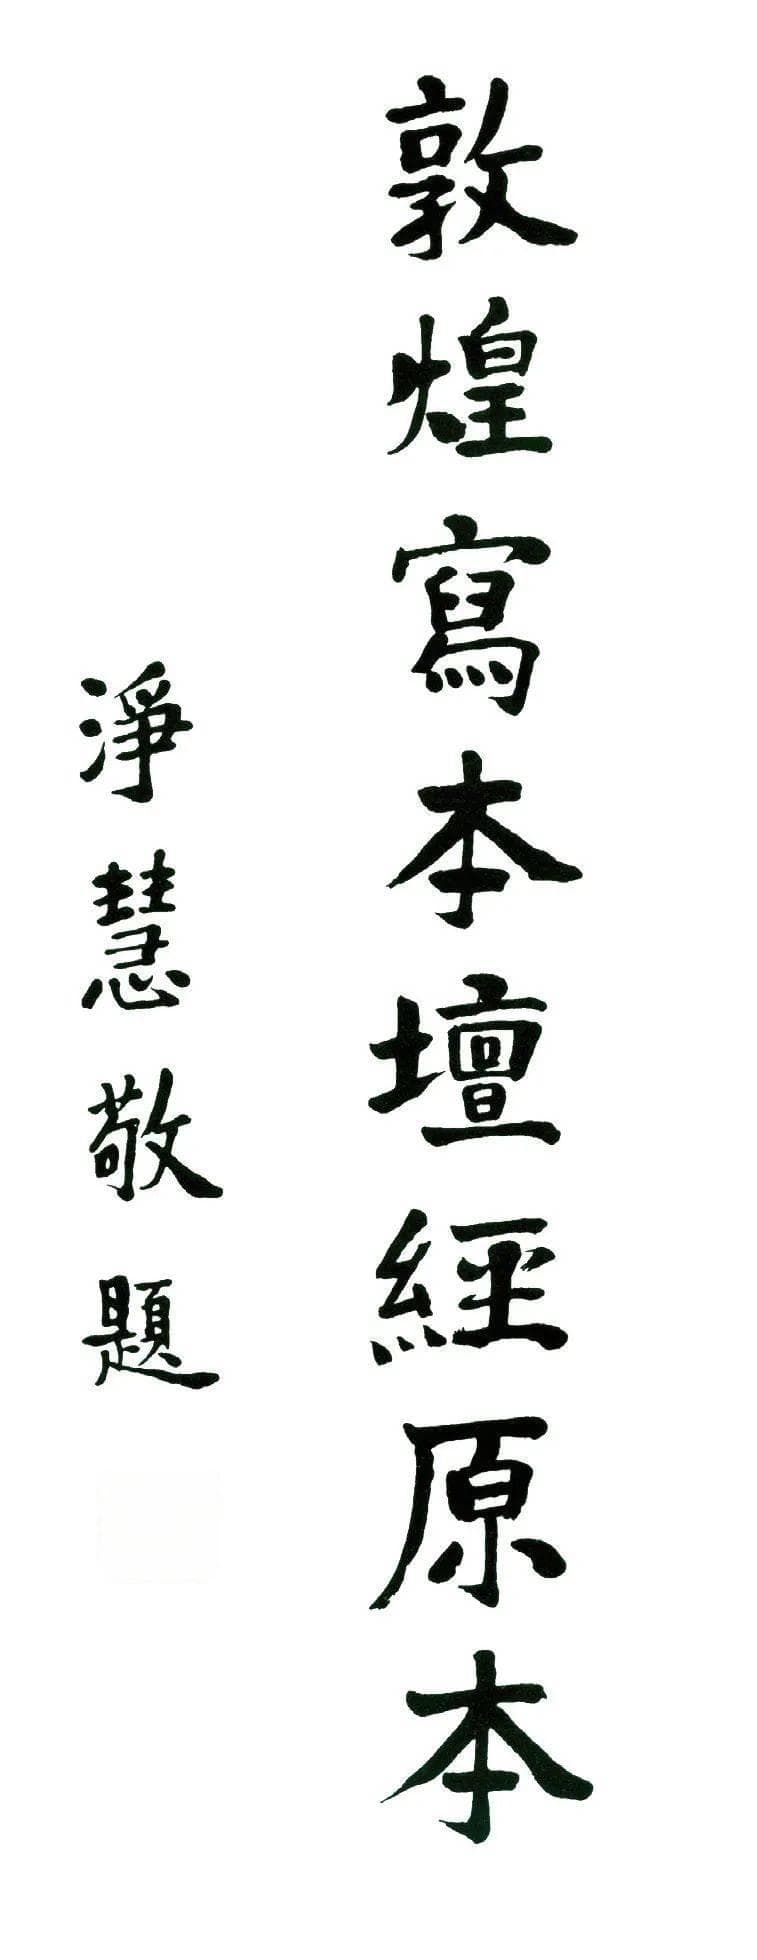 敦煌寫本壇經原本
淨慧敬題